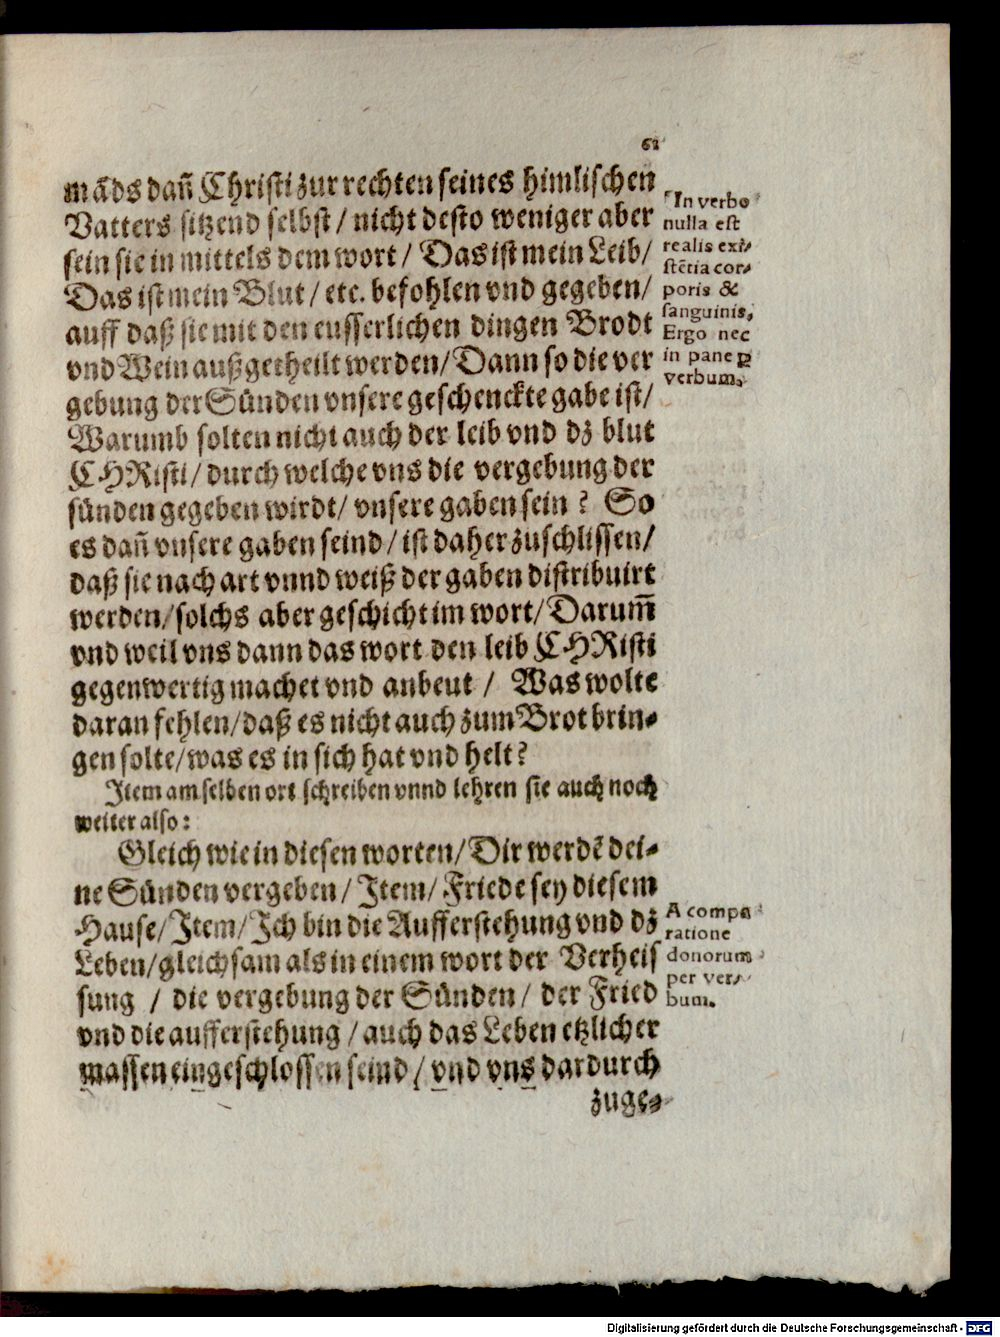 61
mãds dañ Christi zur rechten seines himlischen
Vatters sitzend selbst / nicht desto weniger aber
sein sie in mittels dem wort / Das ist mein Leib /
Das ist mein Blut / etc. befohlen vnd gegeben /
auff daß sie mit den eusserlichen dingen Brodt
vnd Wein außgetheilt werden / Dann so die ver
gebung der Sünden vnsere geschenckte gabe ist /
Warumb solten nicht auch der leib vnd dz blut
CHRisti / durch welche vns die vergebung der
sünden gegeben wirdt / vnsere gaben sein ? So
es dañ vnsere gaben seind / ist daher zuschlissen /
daß sie nach art vnnd weiß der gaben distribuirt
werden / solchs aber geschicht im wort / Darum̃
vnd weil vns dann das wort den leib CHRisti
gegenwertig machet vnd anbeut / Was wolte
daran fehlen / daß es nicht auch zum Brot brin-
gen solte / was es in sich hat vnd helt?
Item am selben ort schreiben vnnd lehren sie auch noch
weiter also:
Gleich wie in diesen worten / Dir werdẽ dei-
ne Sünden vergeben / Item / Friede sey diesem
Hause / Item / Ich bin die Aufferstehung vnd dz
Leben / gleichsam als in einem wort der Verheis
sung / die vergebung der Sünden / der Fried
vnd die aufferstehung / auch das Leben etzlicher
massen eingeschlossen seind / vnd vns dardurch
zuge-
In verbo
nulla est
realis exi-
stẽtia cor-
poris &
sanguinis,
Ergo nec
in pane ꝑ
verbum.
A compa
ratione
donorum
per ver-
bum.
Digitalisierung gefördert durch die Deutsche Forschungsgemeinschaft - DFG